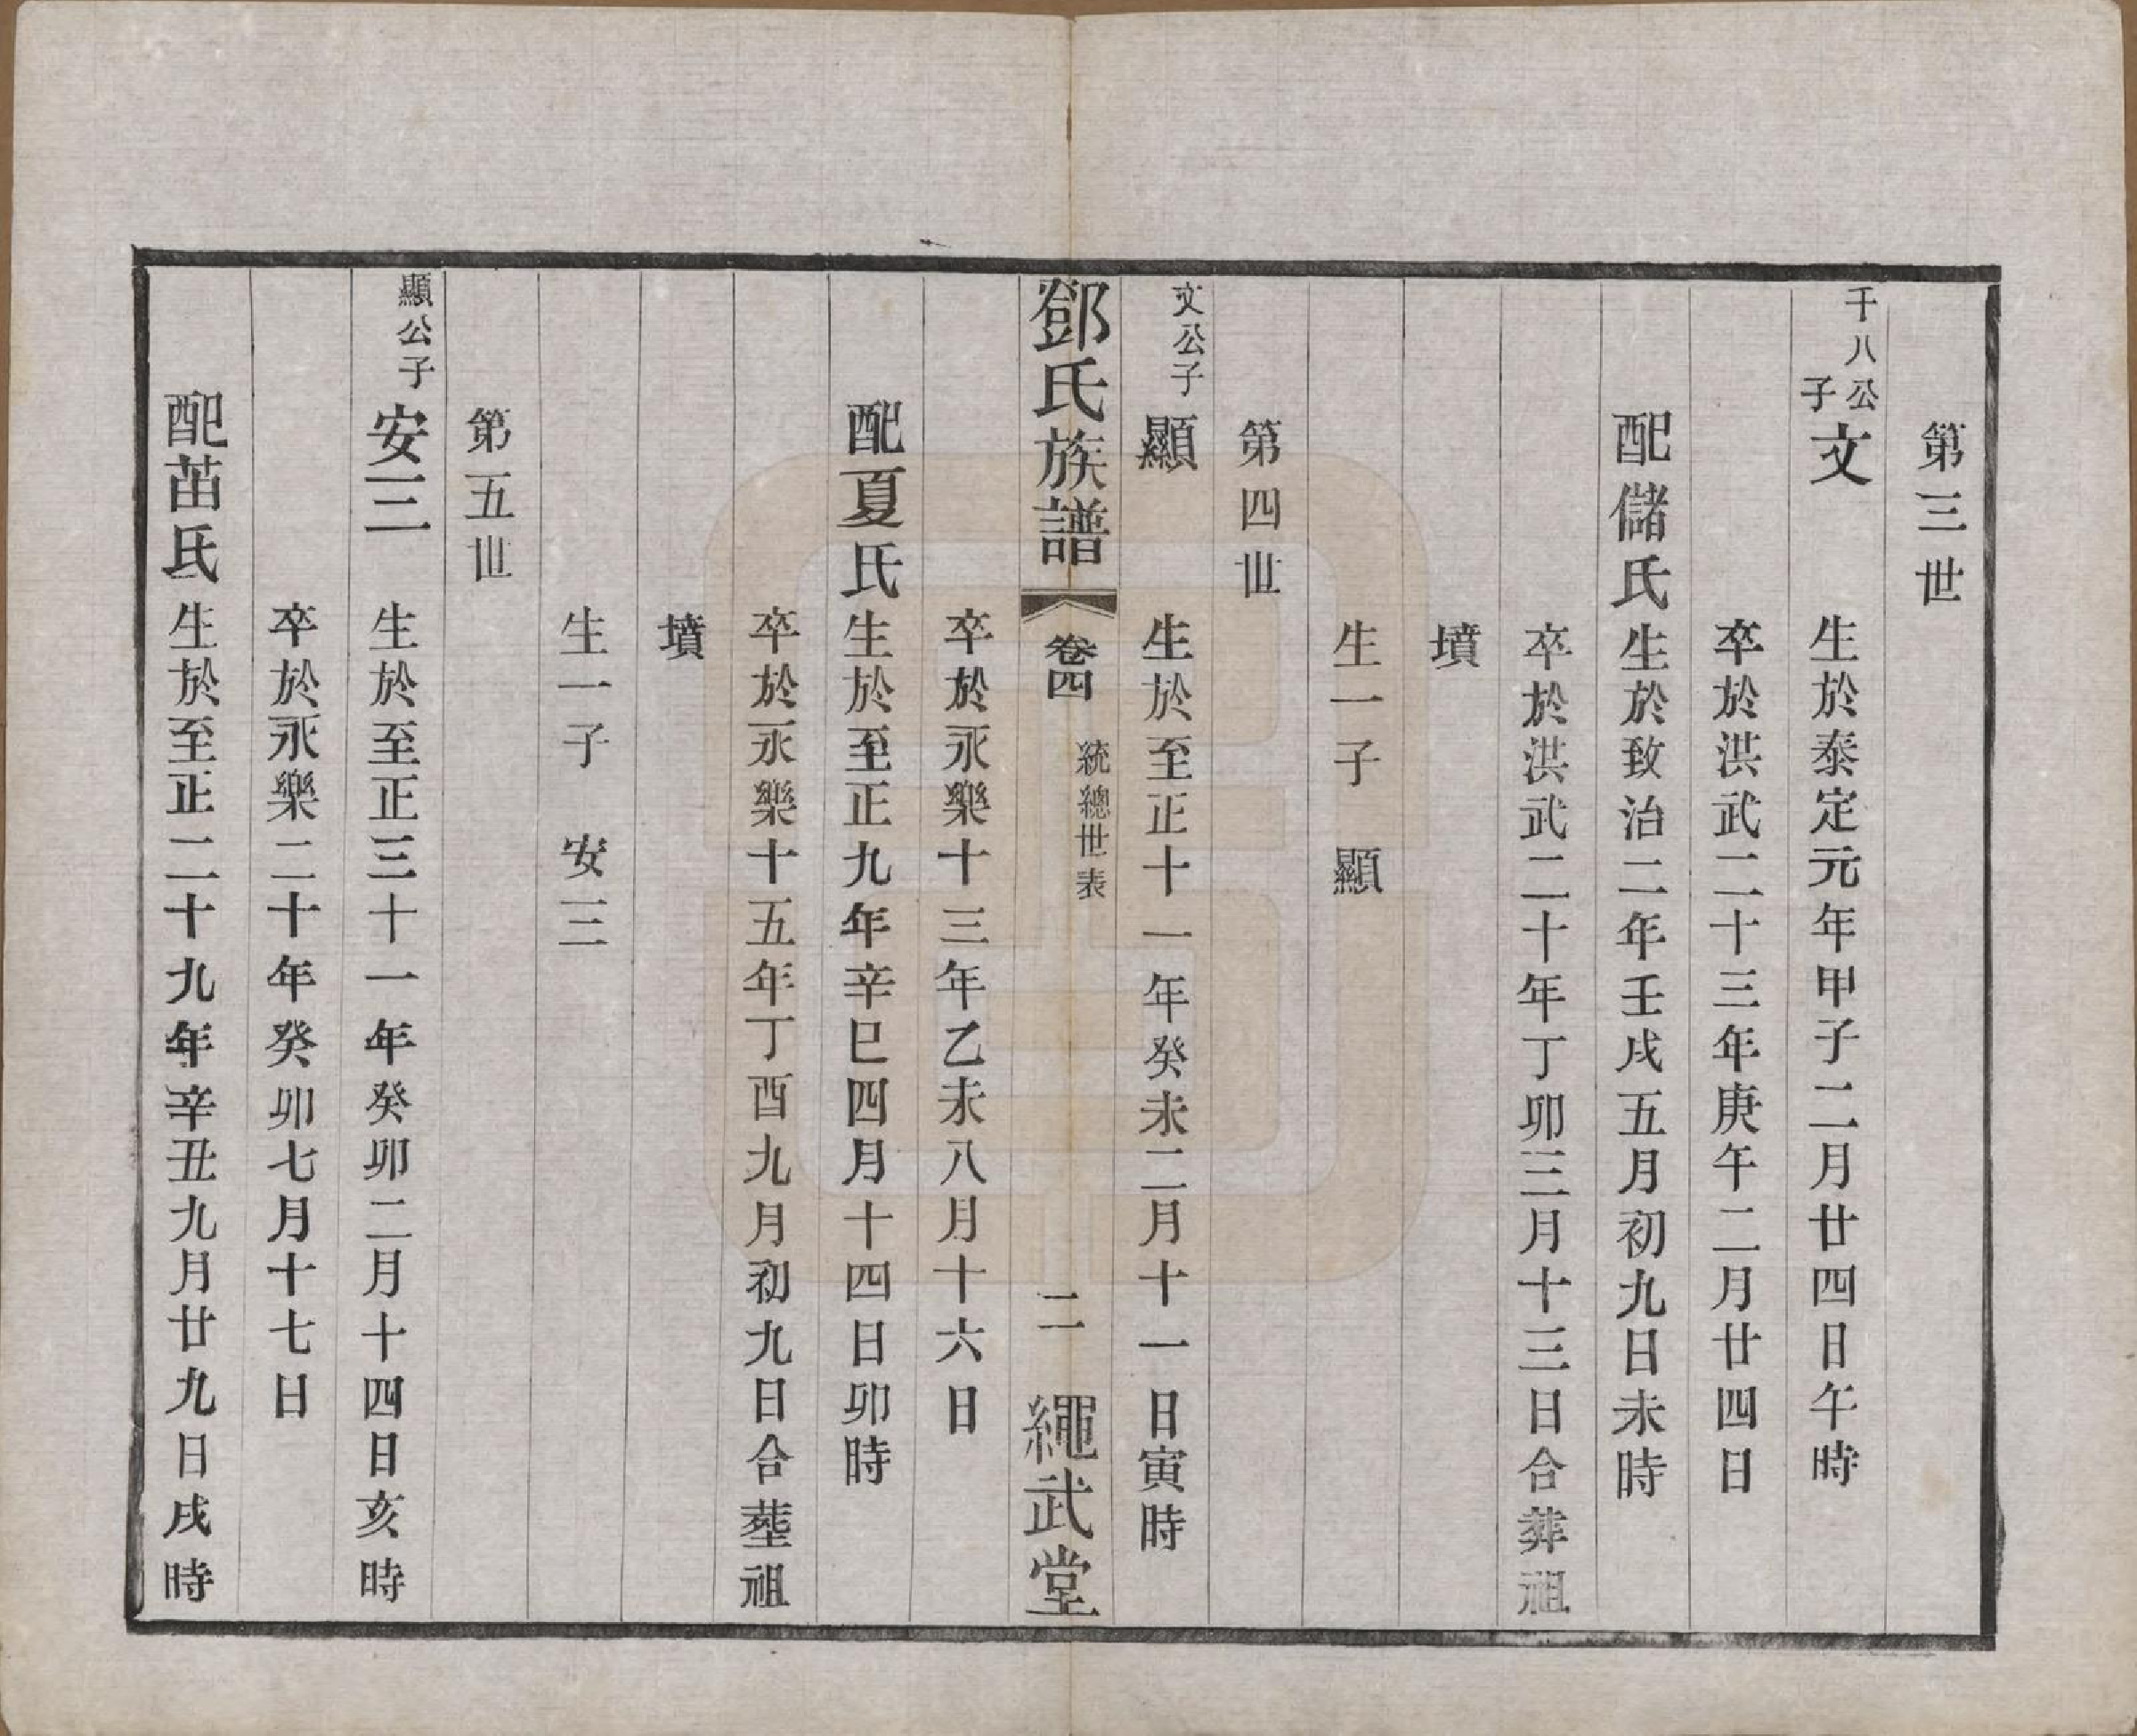 第三世
千八公子文 生於泰定元年甲子二月廿四日午時
卒於洪武二十三年庚午二月廿四日
配儲氏生於致治二年壬戌五月初九日未時
卒於洪武二十年丁卯三月十三日合葬祖
墳
生一子 顯
第四世
文公子顯 生於至正十一年癸未二月十一日寅時
鄧氏族譜 卷四 統總世表 二 繩武堂
卒於永樂十三年乙未八月十六日
配夏氏生於至正九年辛巳四月十四日卯時
卒於永樂十五年丁酉九月初九日合塟祖
墳
生一子 安三
第五世
顯公子安三 生於至正三十一年癸卯二月十四日亥時
卒於永樂二十年癸卯七月十七日
配苖氏生於至正二十九年辛丑九月廿九日戌時